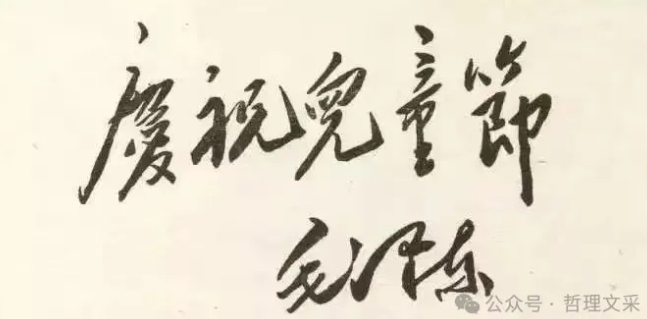 慶祝兒童節
毛泽东
公众号·哲理文采